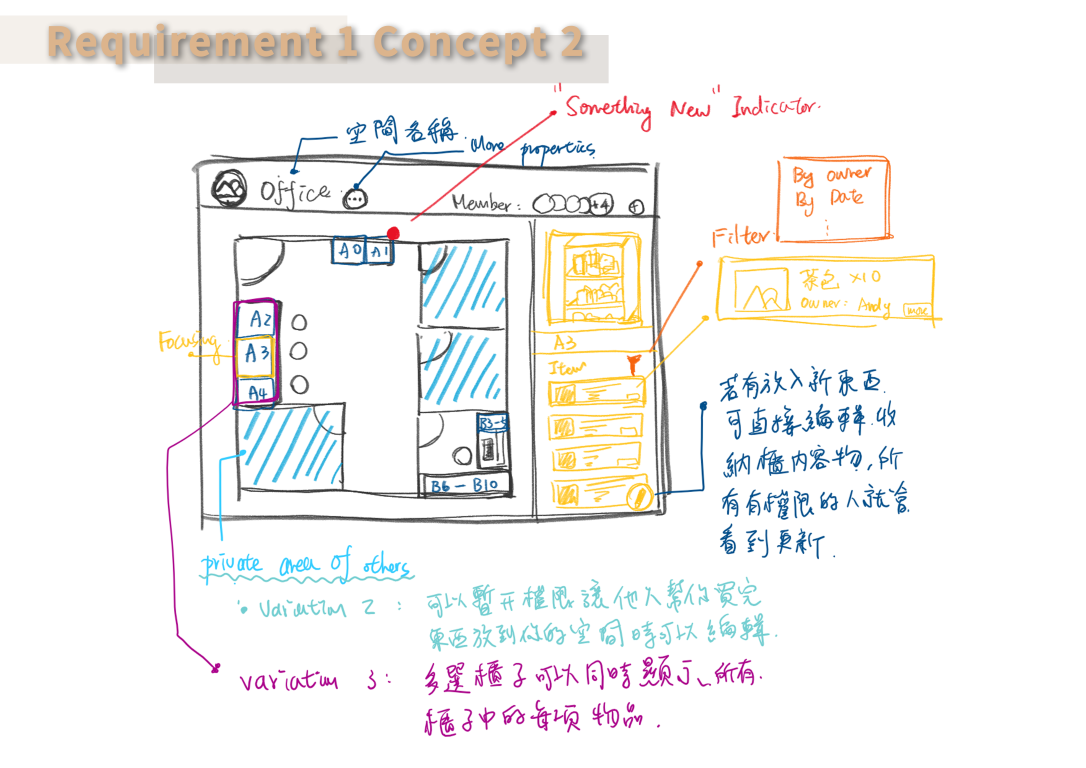 Requirement 1 Concept 2
"Something New" Indicator.
空間名稱
More properties
Office
...
Member:
+4
+
By owner
By Date
Filter
A0
A1
茶包 x10
owner: Andy
more
A2
A3
A4
Focusing
A3
Item
B3-5
B6-B10
若有放入新東西
可直接編輯收
納櫃內容物,所
有有權限的人就會
看到更新.
private area of others
Variation 2 : 可以暫開權限讓他人幫你買完
東西放到你的空間時可以編輯.
variation 3 : 多選櫃子可以同時顯示所有
櫃子中的每項物品.